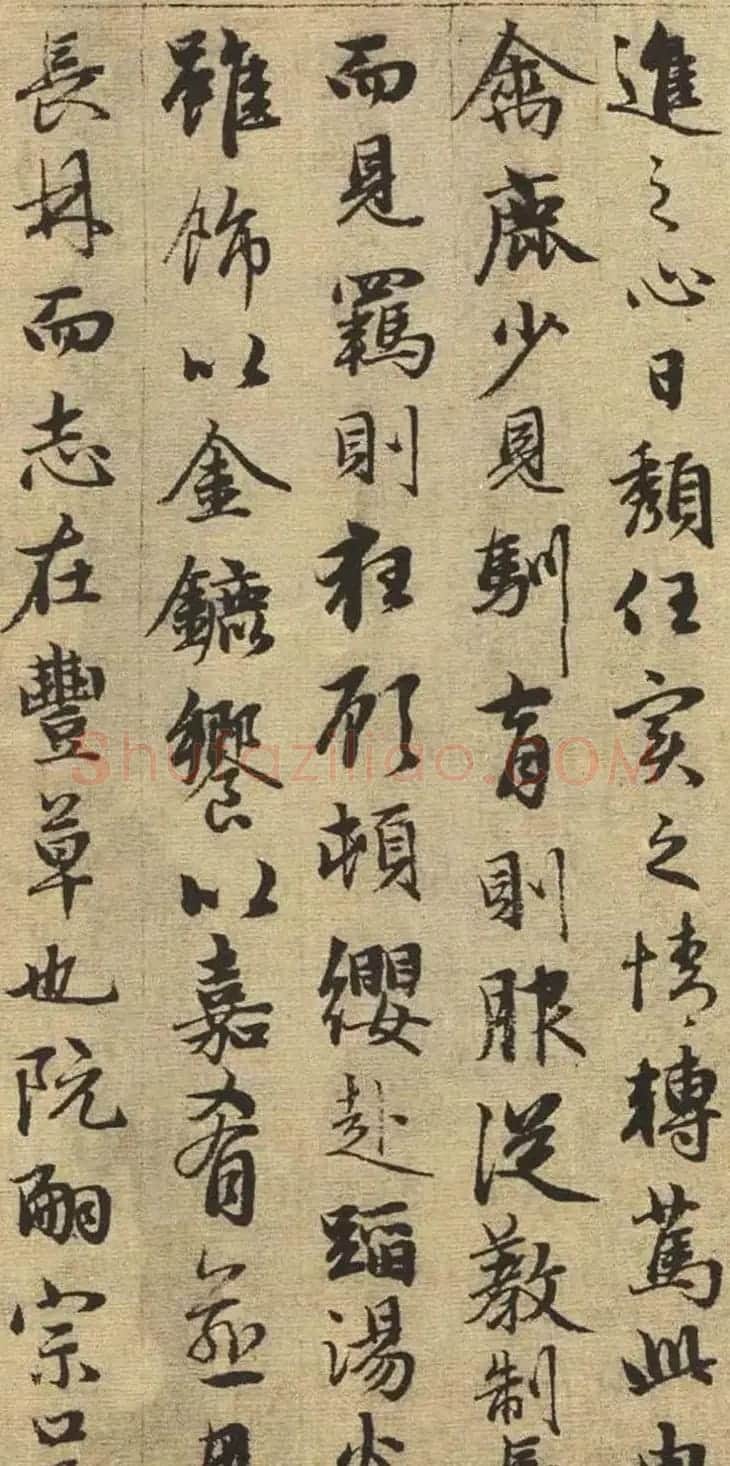 進之心日頹任實之情轉篤此由
禽鹿少見馴育則服從教制長
而見羈則狂顧頓纓赴蹈湯火
雖飾以金鑣饗以嘉肴愈思
長林而志在豐草也阮嗣宗口
Shufaziliao.COM